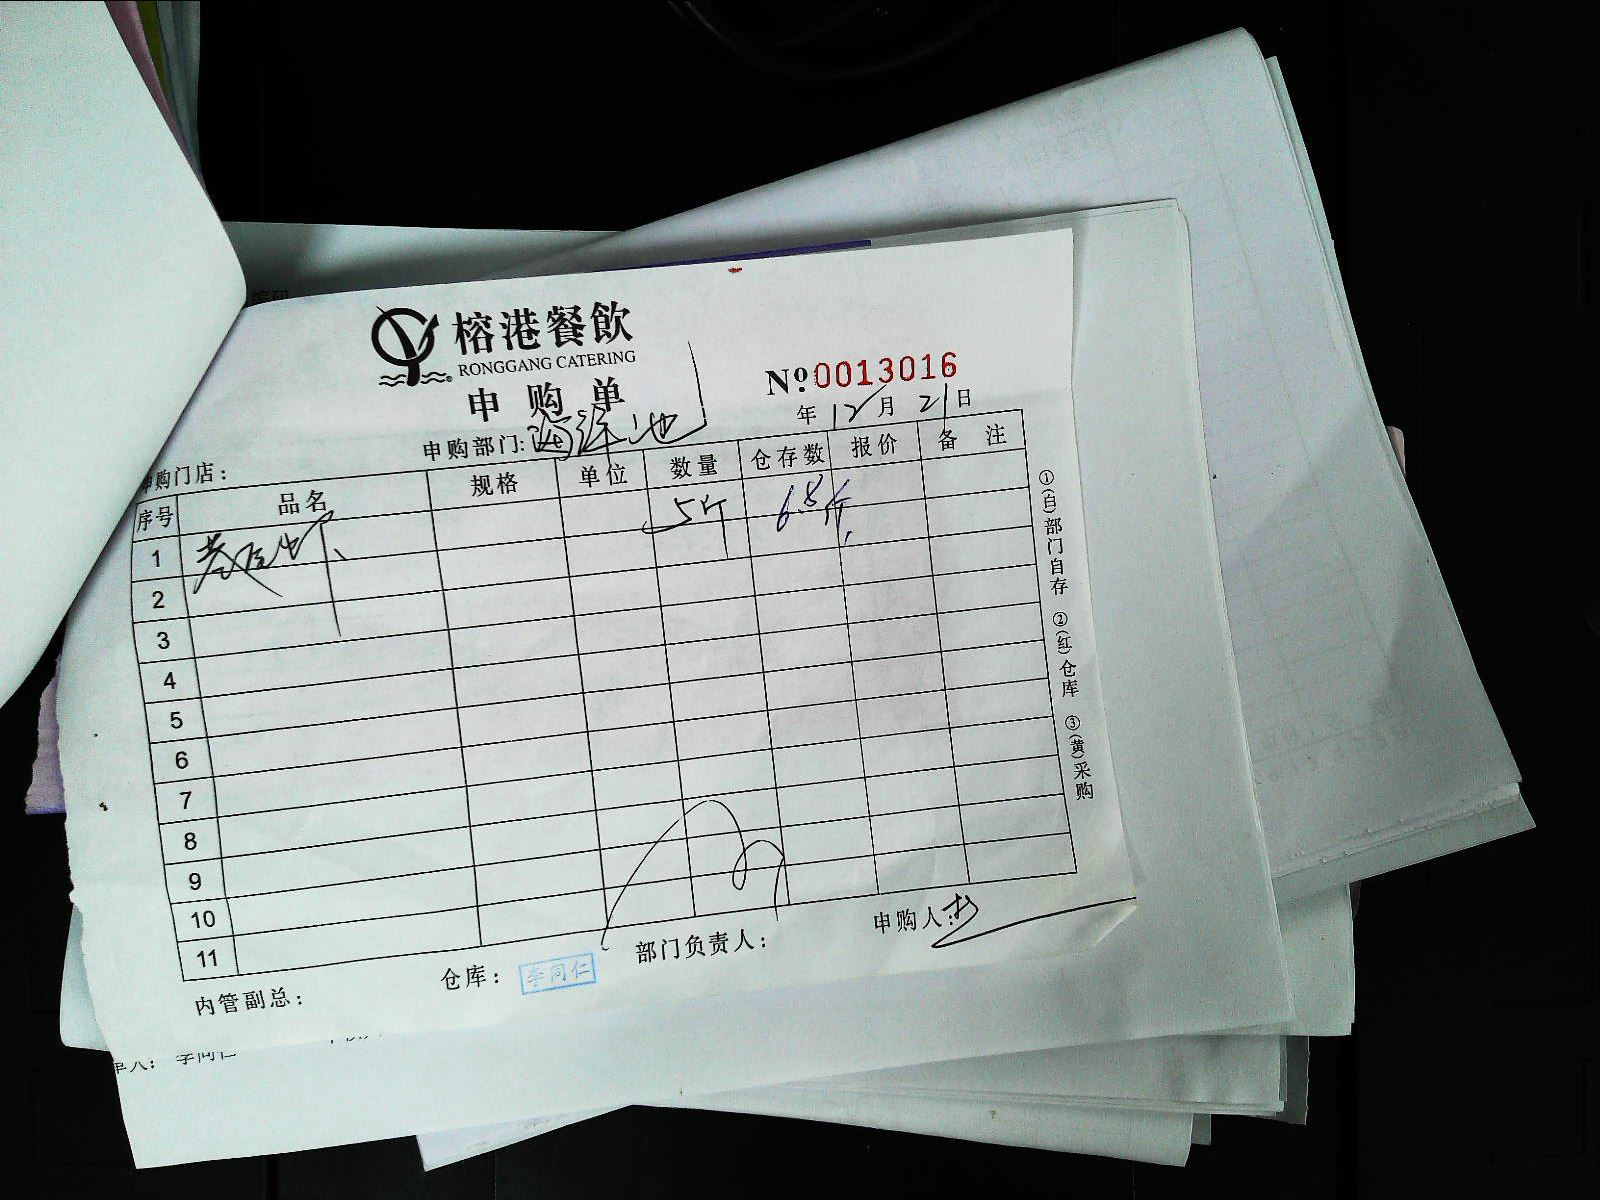 榕港餐飲
RONGGANG CATERING
申购单
№0013016
年12月21日
申购部门:海鲜池
申购门店:
序号 品名 规格 单位 数量 仓存数 报价 备注
1 5斤 6.8斤
2
3
4
5
6
7
8
9
10
11
①(白)部门自存 ②(红)仓库 ③(黄)采购
内管副总: 仓库: 李同仁 部门负责人: 申购人:
单人: 李同仁